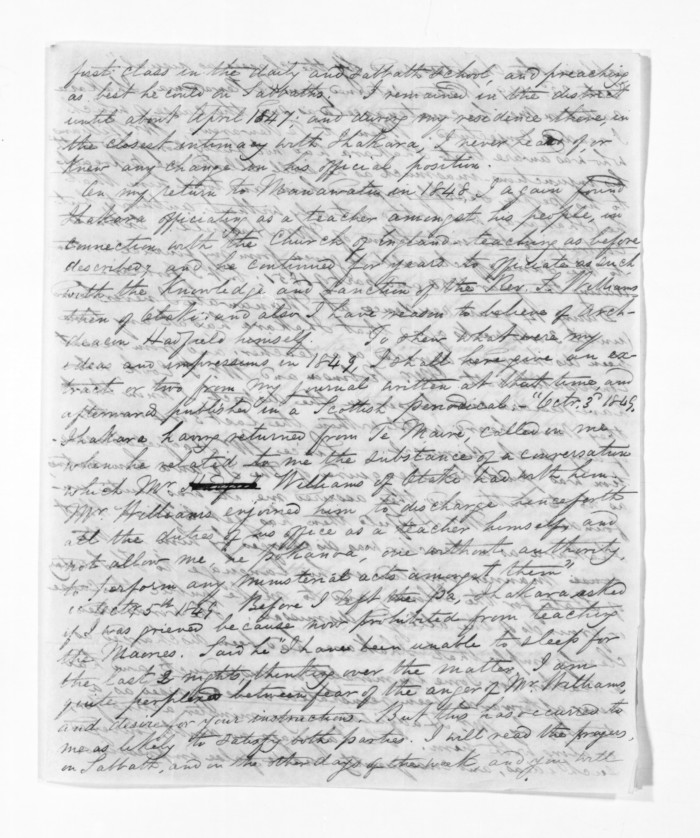 first class in the daily and Sabbath School, and preaching
as best he could on Sabbaths. I remained in the district
until about April 1847; and during my residence there, in
the closest intimacy with Ihakara, I never heard of, or
knew any change in his official position.
On my return to Manawatu in 1848, I again found
Ihakara officiating as a teacher amongst his people, in
connection with the Church of England teaching as before
described, and he continued for years to officiate as such
with the knowledge and sanction of the Rev. Williams
then of Otaki: and also I have reason to believe of Arch-
deacon Hadfield himself. To shew what were my
ideas and impressions in 1849, I shall here give an ex-
tract or two from my journal written at that time, and
afterward published in a Scottish periodical:- "Octr. 3d 1849.
Ihakara, having returned from Te Maire, called on me
when he related to me the substance of a conversation
which Mr. Williams of Otaki had with him.
Mr. Williams enjoined him to discharge henceforth
all the duties of his office as a teacher himself, and
not allow me, one without authority
to perform any ministerial acts amongst them"
"Octr. 5th 1849. Before I left the Pa, Ihakara asked
if I was grieved because now prohibited from teaching
the Maories. Said he "I have been unable to sleep for
the last 2 nights thinking over the matter, I am
quite perplexed between fear of the anger of Mr. Williams,
and desire for your instructions. But this has occurred to
me as likely to satisfy both parties. I will read the prayers,
on Sabbath, and on the other days of the week, and you will